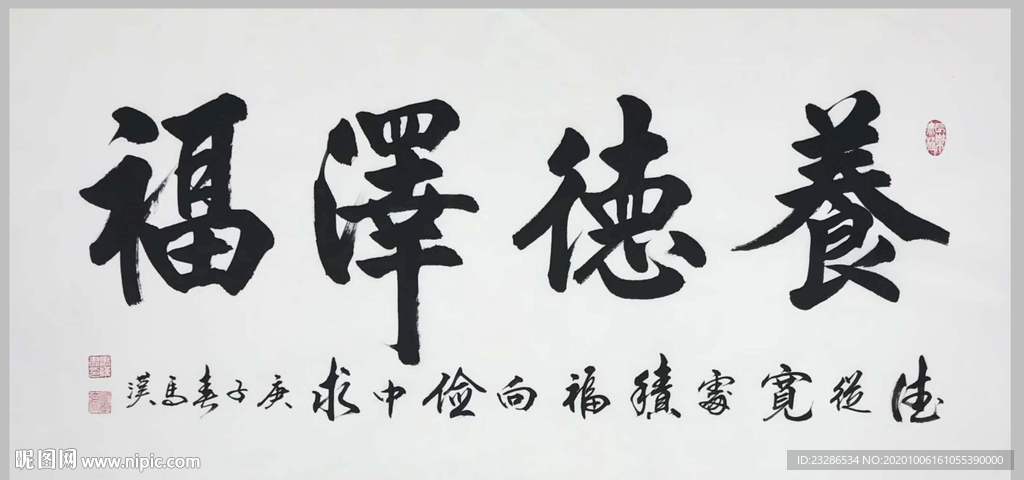 養德澤福
德從寬處積福向儉中求庚子春馬漢
昵图网 www.nipic.com
ID:23286534 NO:20201006161055390000